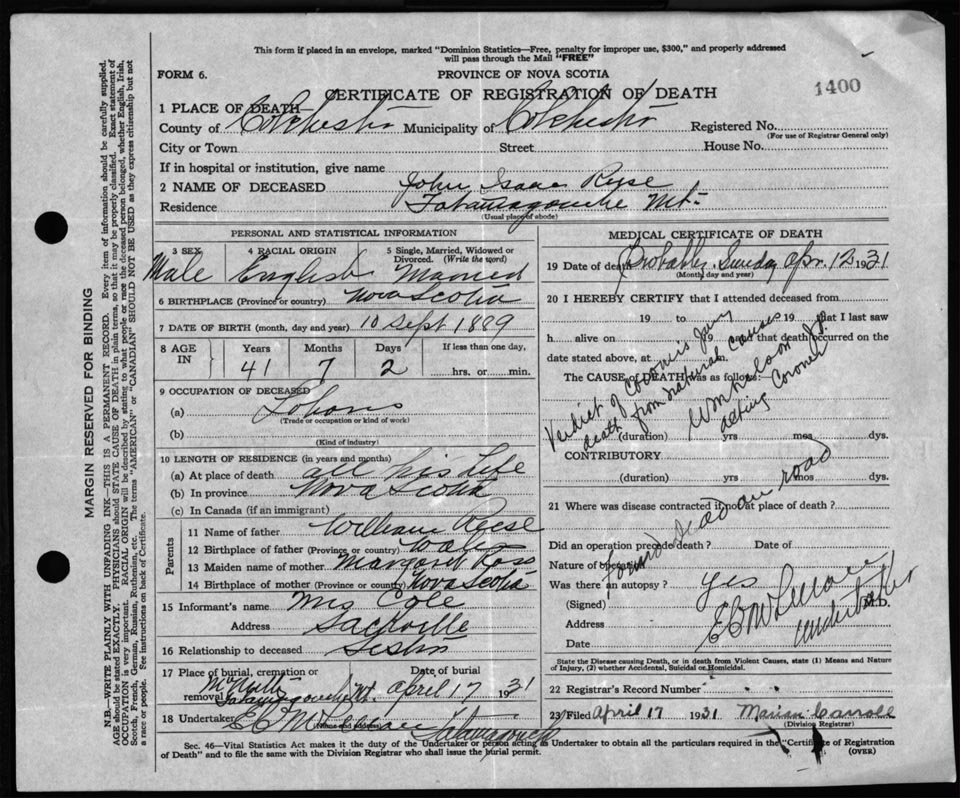 This form if placed in an envelope, marked "Dominion Statistics—Free, penalty for improper use, $300," and properly addressed
will pass through the Mail "FREE"
FORM 6.
PROVINCE OF NOVA SCOTIA
CERTIFICATE OF REGISTRATION OF DEATH
1400
1 PLACE OF DEATH—
County of Colchester Municipality of Colchester Registered No.
(For use of Registrar General only)
City or Town Street House No.
If in hospital or institution, give name
2 NAME OF DECEASED John Isaac Reese
Residence Tatamagouche Mt.
(Usual place of abode)
PERSONAL AND STATISTICAL INFORMATION
3 SEX 4 RACIAL ORIGIN 5 Single, Married, Widowed or
Divorced. (Write the word)
Male English Married
6 BIRTHPLACE (Province or country) Nova Scotia
7 DATE OF BIRTH (month, day and year) 10 Sept 1889
8 AGE IN Years Months Days If less than one day,
41 7 2 hrs. or min.
9 OCCUPATION OF DECEASED
(a)
(Trade or occupation or kind of work)
(b)
(Kind of industry)
10 LENGTH OF RESIDENCE (in years and months)
(a) At place of death all his Life
(b) In province Nova Scotia
(c) In Canada (if an immigrant)
Parents
11 Name of father William Reese
12 Birthplace of father (Province or country) Wales
13 Maiden name of mother Margaret Ross
14 Birthplace of mother (Province or country) Nova Scotia
15 Informant's name Mrs Cole
Address Sackville
16 Relationship to deceased Sister
17 Place of burial, cremation or removal Date of burial
Tatamagouche Mt. April 17 1931
18 Undertaker Tatamagouche
MEDICAL CERTIFICATE OF DEATH
19 Date of death Probably Sunday Apr. 12 1931
(Month day and year)
20 I HEREBY CERTIFY that I attended deceased from
19 to 19 that I last saw
h alive on 19 and that death occurred on the
date stated above, at
The CAUSE OF DEATH was as follows:—
Verdict of coroners Jury
death from natural causes
acting Coroner
(duration) yrs mos dys.
CONTRIBUTORY
(duration) yrs mos dys.
21 Where was disease contracted if not at place of death?
found dead on road
Did an operation precede death? Date of
Nature of operation
Was there an autopsy? yes
(Signed) M.D.
undertaker
Address
Date
State the Disease causing Death, or in death from Violent Causes, state (1) Means and Nature
of Injury, (2) whether Accidental, Suicidal or Homicidal.
22 Registrar's Record Number
23 Filed April 17 1931 Marian Carroll
(Division Registrar)
Sec. 46—Vital Statistics Act makes it the duty of the Undertaker or person acting as Undertaker to obtain all the particulars required in the "Certificate of Registration
of Death" and to file the same with the Division Registrar who shall issue the burial permit.
(OVER)
MARGIN RESERVED FOR BINDING
N.B.—WRITE PLAINLY WITH UNFADING INK—THIS IS A PERMANENT RECORD. Every item of information should be carefully supplied.
AGE should be stated EXACTLY. PHYSICIANS should STATE CAUSE OF DEATH in plain terms, so that it may be properly classified. Exact statement of
OCCUPATION is very important. RACIAL ORIGIN will be described by stating to what people or race the deceased person belonged, whether English, Irish,
Scotch, French, German, Russian, Ruthenian, etc. The terms "AMERICAN" or "CANADIAN" SHOULD NOT BE USED as they express citizenship but not
a race or people. See instructions on back of Certificate.